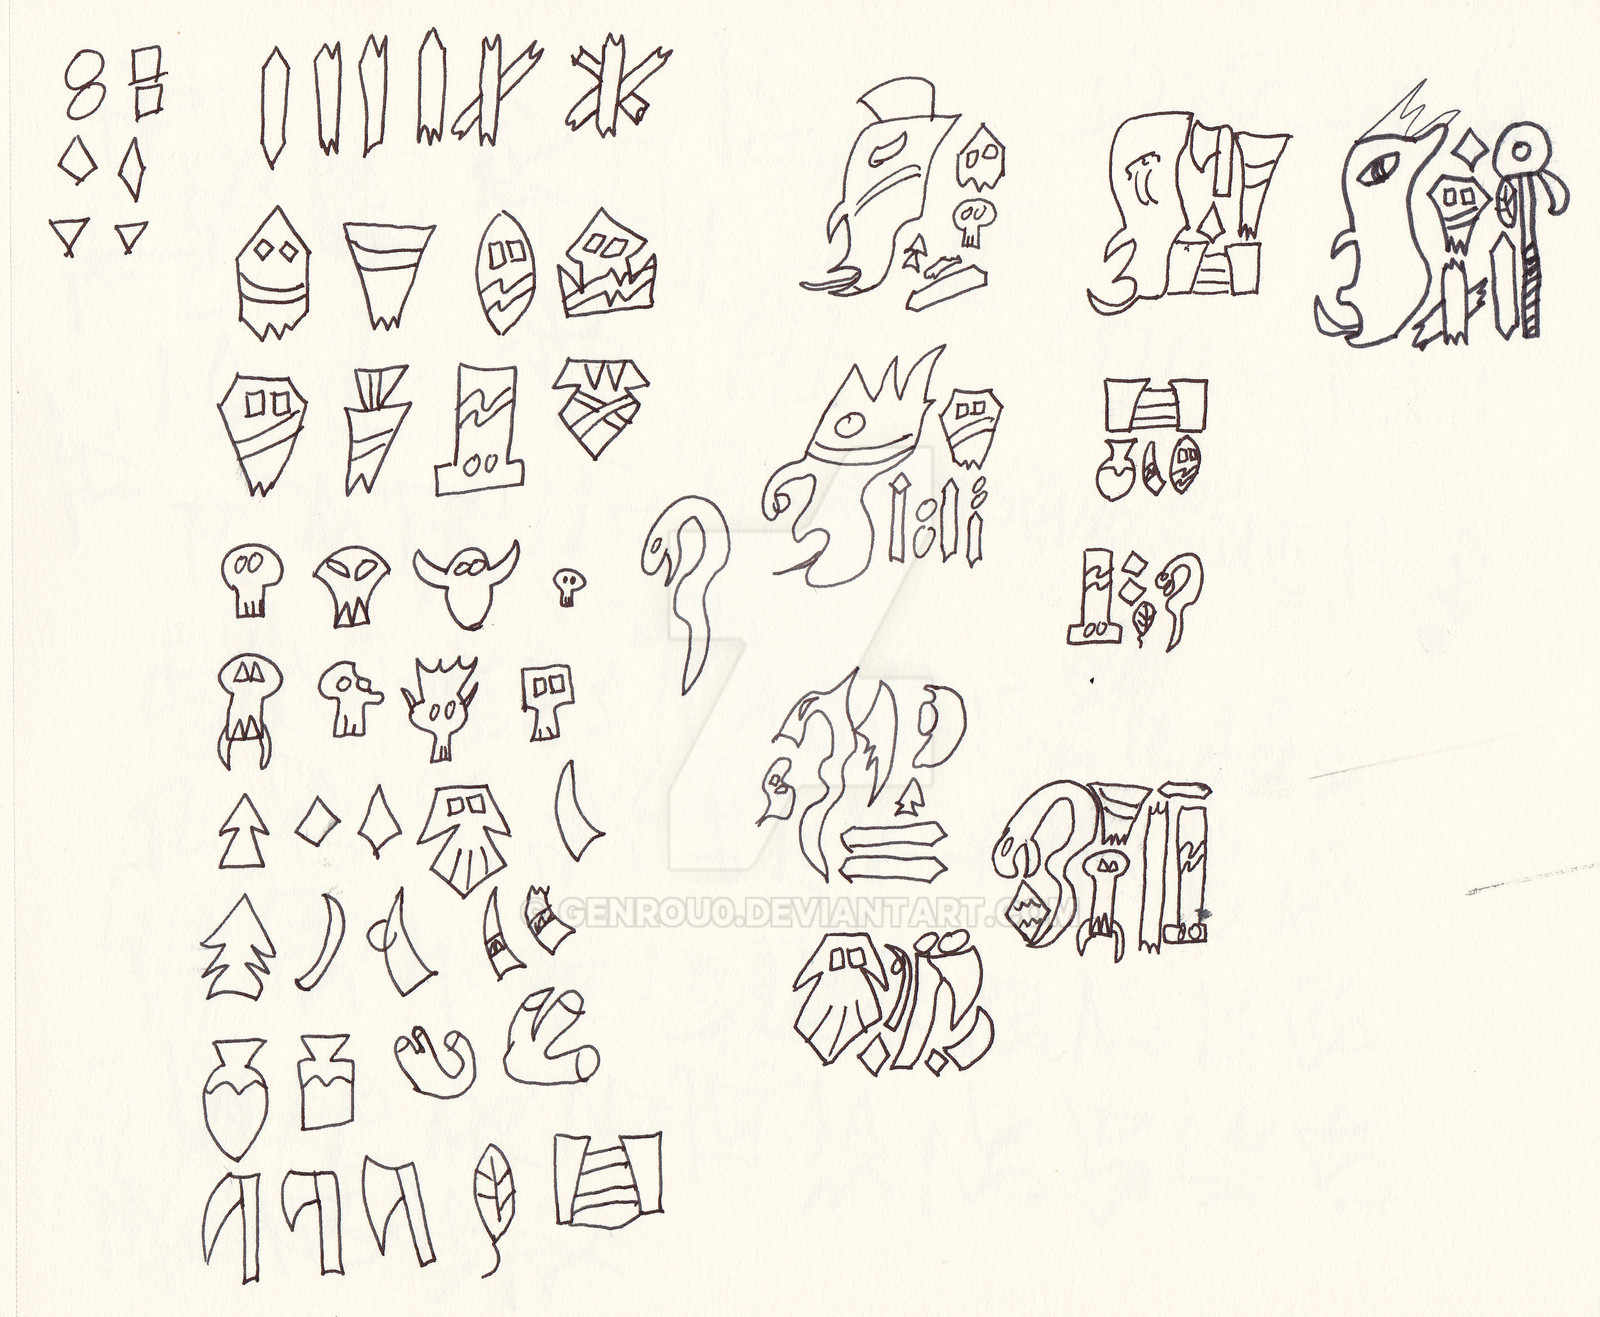 © GENROU0.DEVIANTART.COM